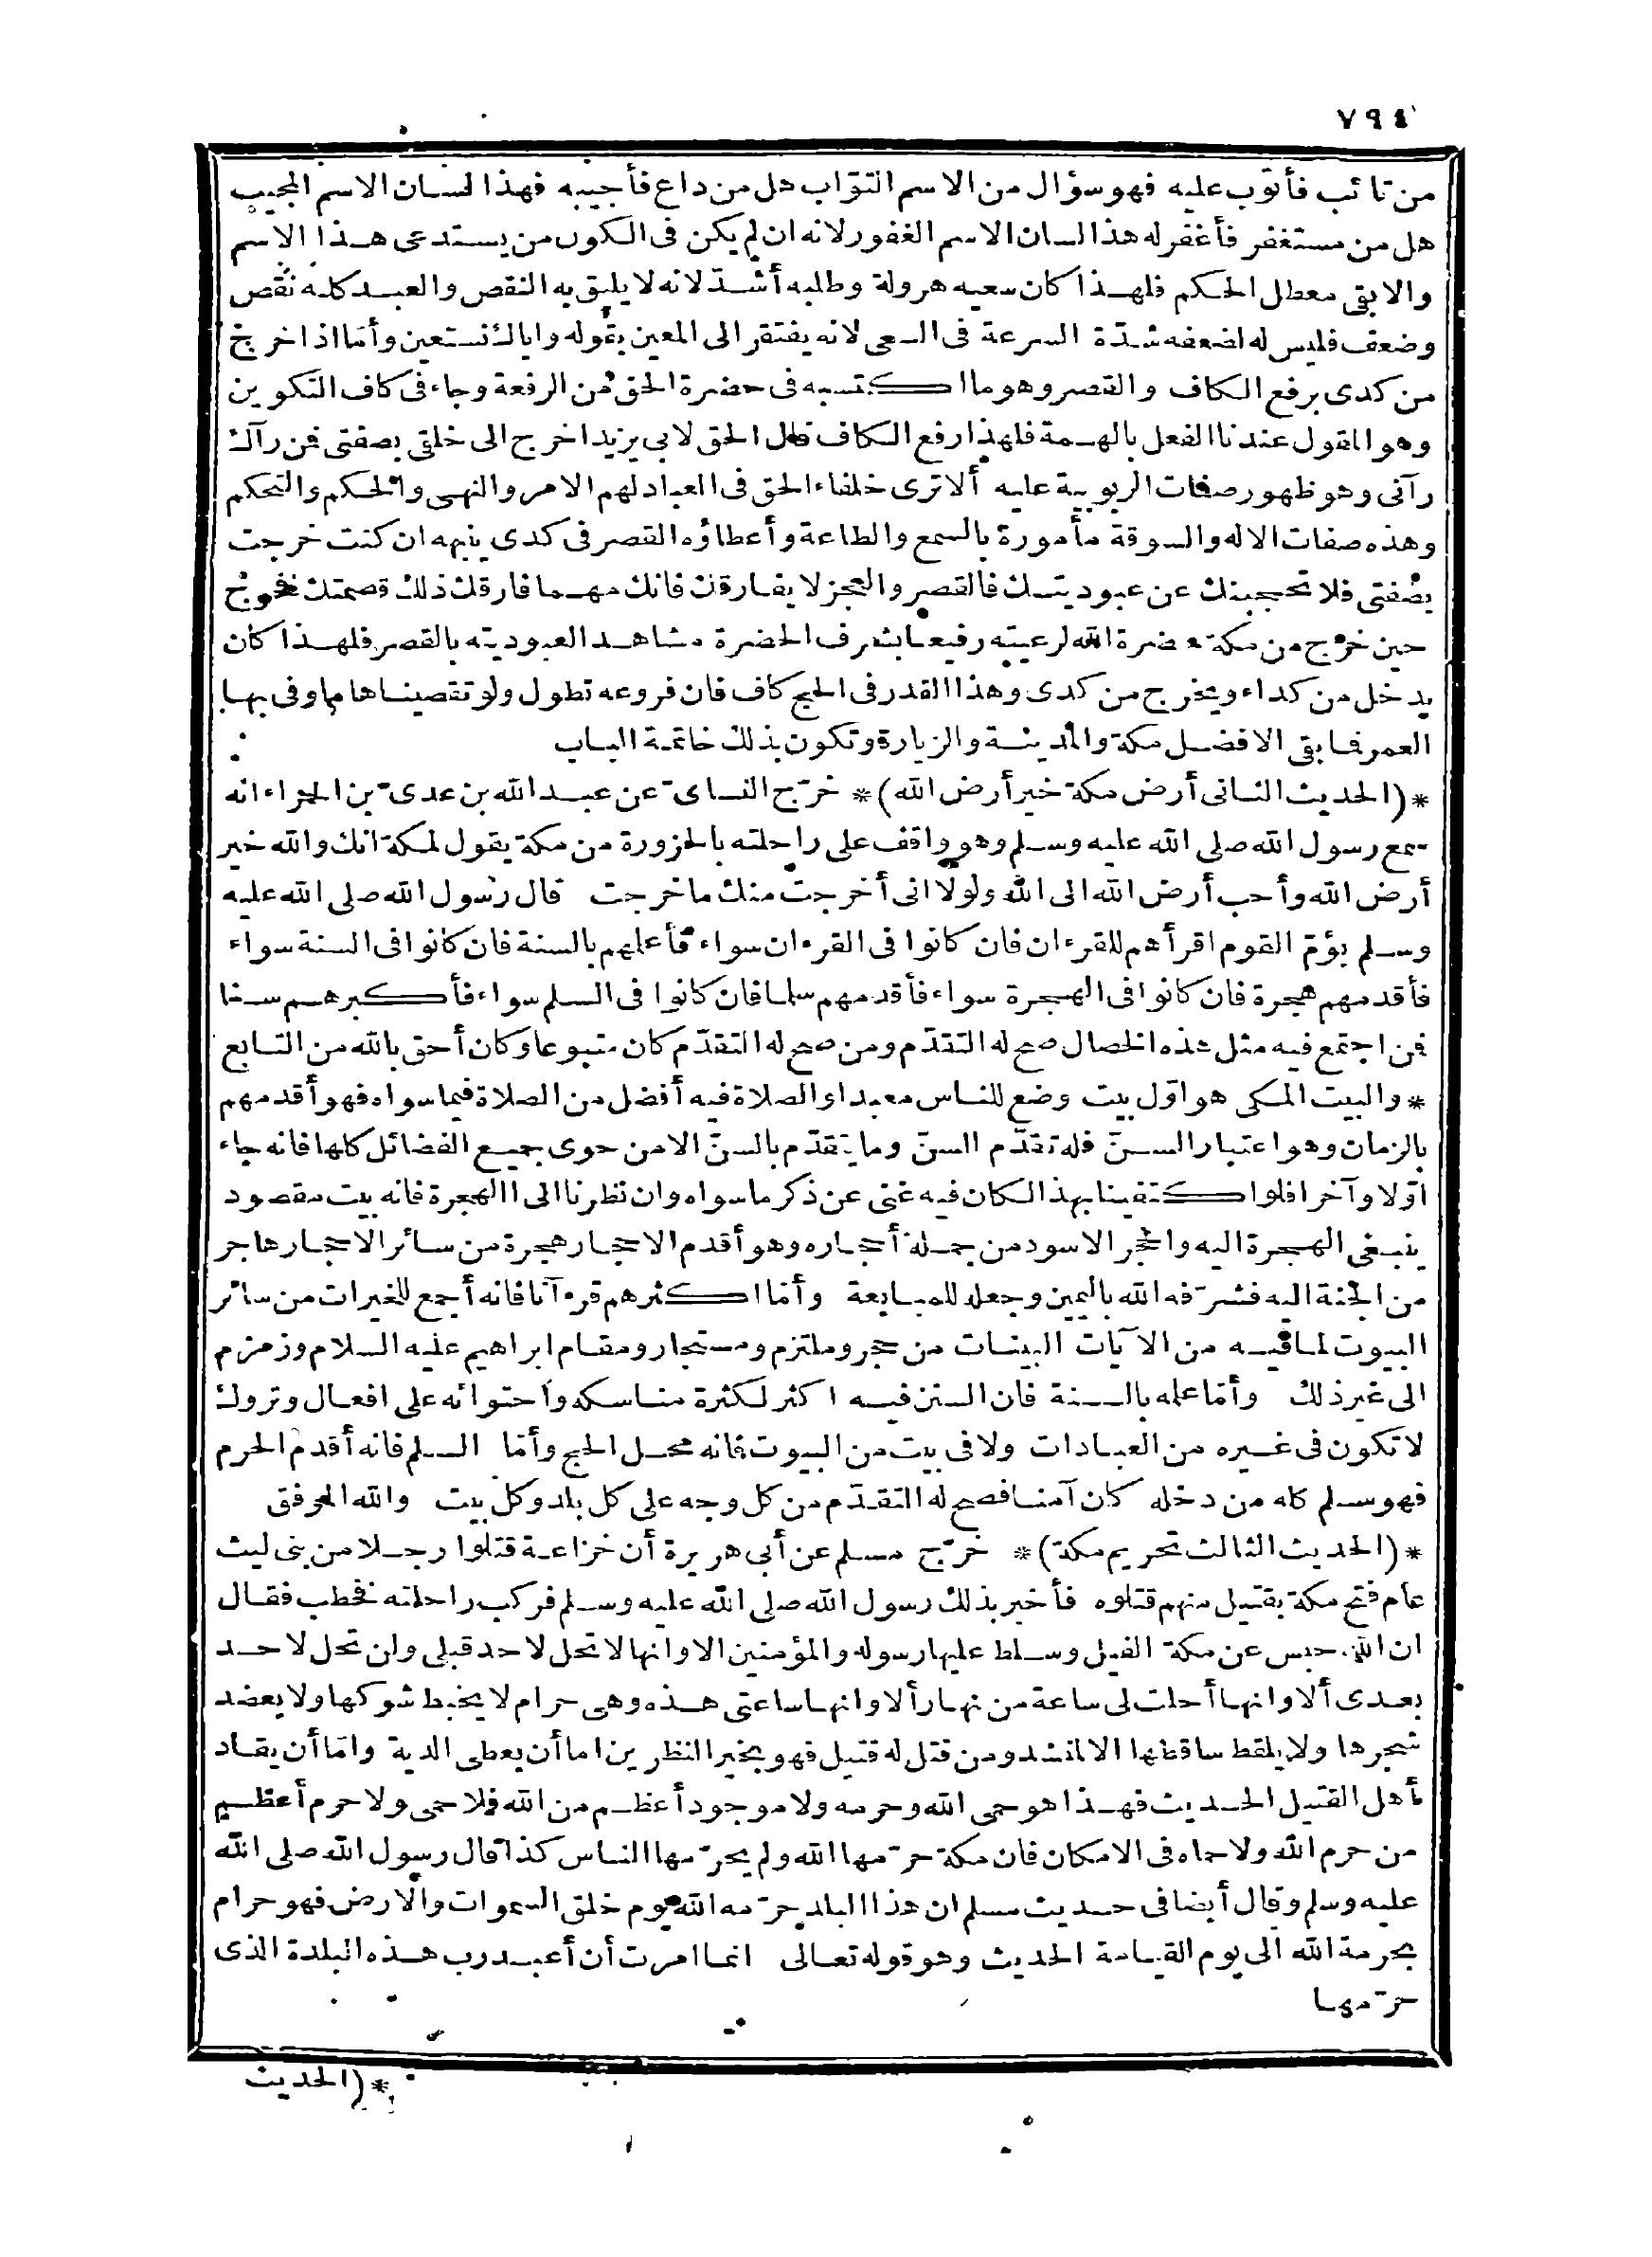 ٧٩٤
من تائب فأتوب عليه فهو سؤال من الاسم التوّاب هل من داع فأجيبه فهذا لسان الاسم المجيب
هل من مستغفر فأغفر له هذا لسان الاسم الغفور لانه ان لم يكن فى الكون من يستدعى هذا الاسم
والابقى معطل الحكم فلهذا كان سعيه هرولة وطلبه أشدّ لانه لا يليق به النقص والعبد كله نقص
وضعف فليس له لضعفه شدّة السرعة فى السعى لانه يفتقر الى المعين بقوله واياك نستعين وأمّا اذا خرج
من كدى برفع الكاف والقصر وهو ما اكتسبه فى حضرة الحق من الرفعة وجاء فى كاف التكوين
وهو المقول عندنا الفعل بالهمة فلهذا رفع الكاف قال الحق لابى يزيد اخرج الى خلقى بصفتى فمن رآك
رآنى وهو ظهور صفات الربوبية عليه ألا ترى خلفاء الحق فى العباد لهم الامر والنهى والحكم والتحكم
وهذه صفات الاله والسوقة مأمورة بالسمع والطاعة وأعطاؤه القصر فى كدى ينبهه ان كنت خرجت
بصفتى فلا تحجبنك عن عبوديتك فالقصر والعجز لا يفارقك فانك مهما فارقك ذلك قصمتك فخرج
حين خرج من مكة حضرة الله لرعيته رفيعا بشرف الحضرة مشاهد العبوديته بالقصر فلهذا كان
يدخل من كداء ويخرج من كدى وهذا القدر فى الحج كاف فان فروعه تطول ولو تقصيناها ما وفى بها
العمر فما بقى الا فضل مكة والمدينة والزيارة وتكون بذلك خاتمة الباب
* (الحديث الثانى أرض مكة خير أرض الله) * خرّج النساى عن عبد الله بن عدىّ بن الحمراء انه
سمع رسول الله صلى الله عليه وسلم وهو واقف على راحلته بالحزورة من مكة يقول لمكة انك والله خير
أرض الله وأحب أرض الله الى الله ولولا انى أخرجت منك ما خرجت قال رسول الله صلى الله عليه
وسلم يؤمّ القوم اقرأهم للقرءان فان كانوا فى القرءان سواء فأعلمهم بالسنة فان كانوا فى السنة سواء
فأقدمهم هجرة فان كانوا فى الهجرة سواء فأقدمهم سلما فان كانوا فى السلم سواء فأكبرهم سنا
فمن اجتمع فيه مثل هذه الخصال صح له التقدّم ومن صح له التقدّم كان متبوعا وكان أحق بالله من التابع
* والبيت المكى هو اوّل بيت وضع للناس معبدا والصلاة فيه أفضل من الصلاة فيما سواه فهو أقدمهم
بالزمان وهو اعتبار السنّ فله تقدّم السنّ وما يتقدّم بالسنّ الا من حوى جميع الفضائل كلها فانه جاء
اوّلا وآخرا فلو اكتفينا بهذا لكان فيه غنى عن ذكر ما سواه وان نظرنا الى الهجرة فانه بيت مقصود
ينبغى الهجرة اليه والحجر الاسود من جملة أحجاره وهو أقدم الاحجار هجرة من سائر الاحجار هاجر
من الجنة اليه فشرّفه الله باليمين وجعله للمبايعة وأمّا اكثرهم قرءآنا فانه أجمع للخيرات من سائر
البيوت لما فيه من الآيات البينات من حجر وملتزم ومستجار ومقام ابراهيم عليه السلام وزمزم
الى غير ذلك وأمّا علمه بالسنة فان السنن فيه اكثر لكثرة مناسكه واحتوائه على افعال وتروك
لا تكون فى غيره من العبادات ولا فى بيت من البيوت فانه محل الحج وأمّا السلم فانه أقدم الحرم
فهو سلم كله من دخله كان آمنا فصح له التقدّم من كل وجه على كل بلد وكل بيت والله الموفق
* (الحديث الثالث تحريم مكة) * خرّج مسلم عن أبى هريرة أن خزاعة قتلوا رجلا من بنى ليث
عام فتح مكة بقتيل منهم قتلوه فأخبر بذلك رسول الله صلى الله عليه وسلم فركب راحلته فخطب فقال
ان الله حبس عن مكة الفيل وسلط عليها رسوله والمؤمنين الا وانها لا تحل لاحد قبلى ولن تحل لاحد
بعدى ألا وانها أحلت لى ساعة من نهار ألا وانها ساعتى هذه وهى حرام لا يخبط شوكها ولا يعضد
شجرها ولا يلقط ساقطها الا لمنشد ومن قتل له قتيل فهو بخير النظرين اما أن يعطى الدية وامّا أن يقاد
أهل القتيل الحديث فهذا هو حمى الله وحرمه ولا موجود أعظم من الله فلا حمى ولا حرم أعظم
من حرم الله ولا حماه فى الامكان فان مكة حرّمها الله ولم يحرّمها الناس كذا قال رسول الله صلى الله
عليه وسلم وقال أيضا فى حديث مسلم ان هذا البلد حرّمه الله يوم خلق السموات والارض فهو حرام
بحرمة الله الى يوم القيامة الحديث وهو قوله تعالى انما امرت أن أعبد رب هذه البلدة الذى
حرّمها
* (الحديث